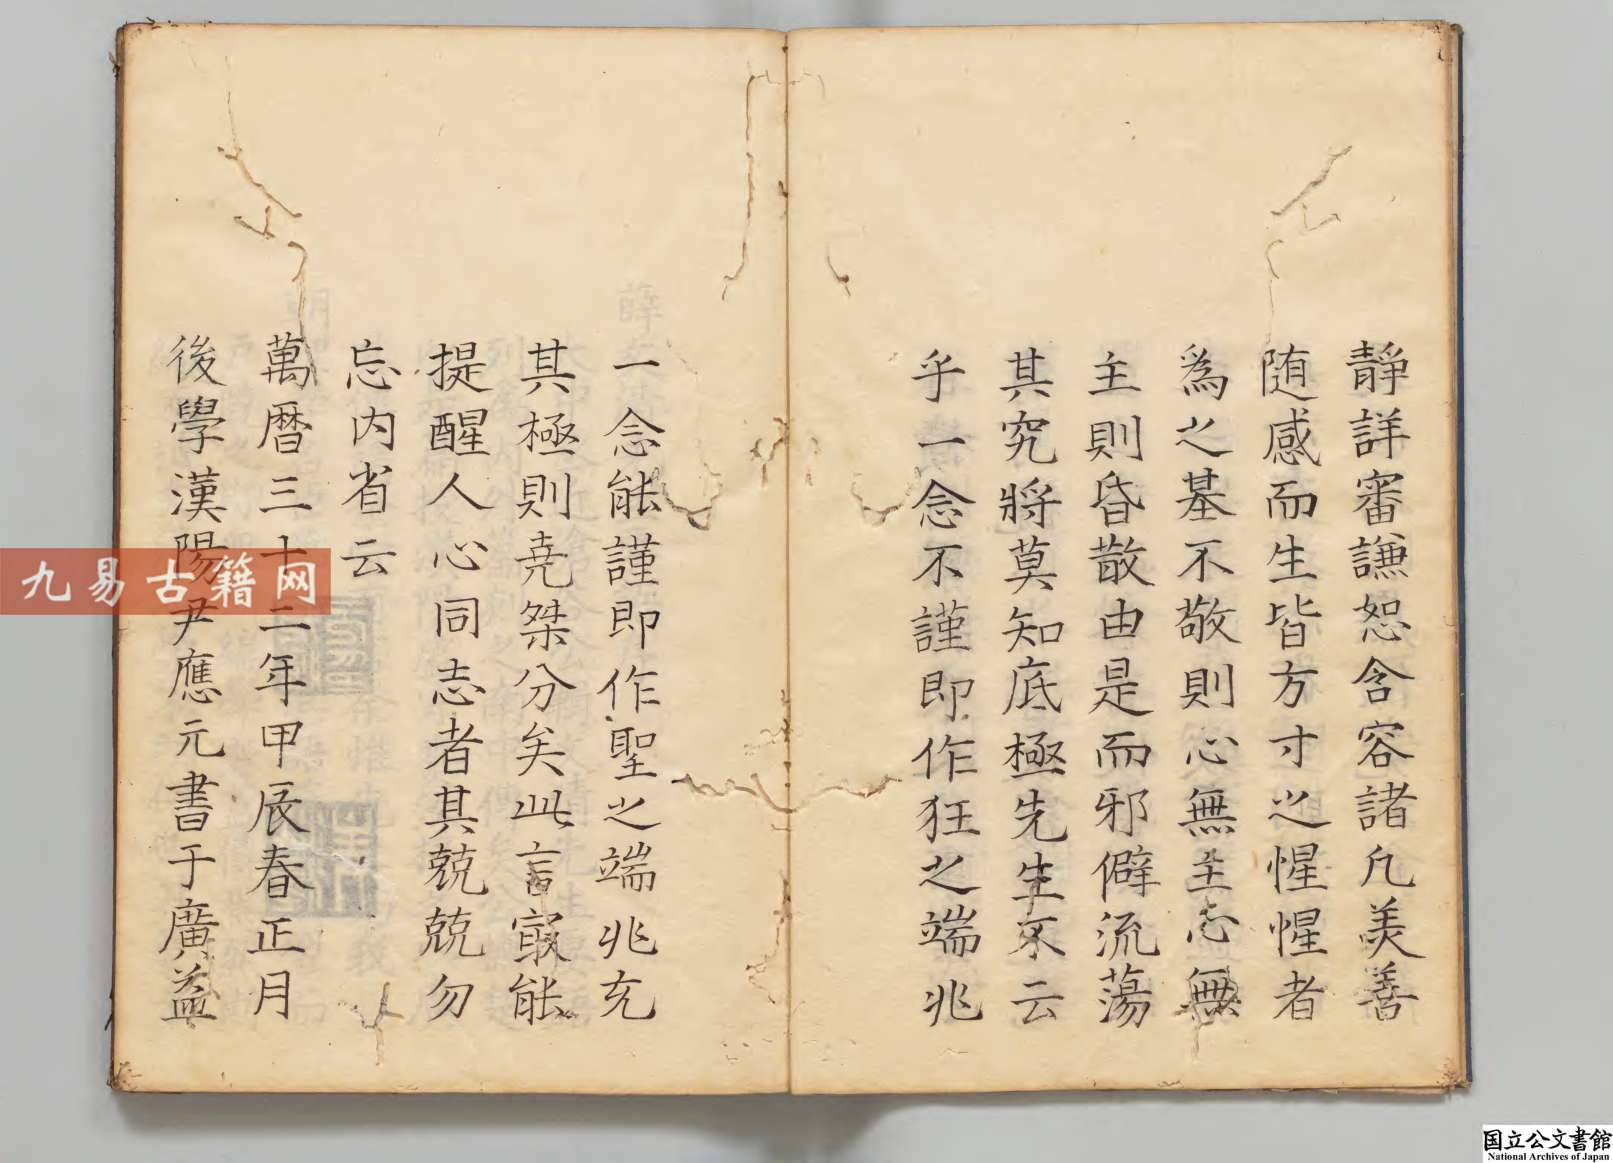 靜詳審謙恕含容諸凡美善
随感而生皆方寸之惺惺者
為之基不敬則心無主心無
主則昏散由是而邪僻流蕩
其究將莫知底極先生不云
乎一念不謹即作狂之端兆
一念能謹即作聖之端兆充
其極則尭桀分矣此言㝡能
提醒人心同志者其兢兢勿
忘内省云
萬曆三十二年甲辰春正月
後學漢陽尹應元書于廣益
九易古籍网
国立公文書館
National Archives of Japan